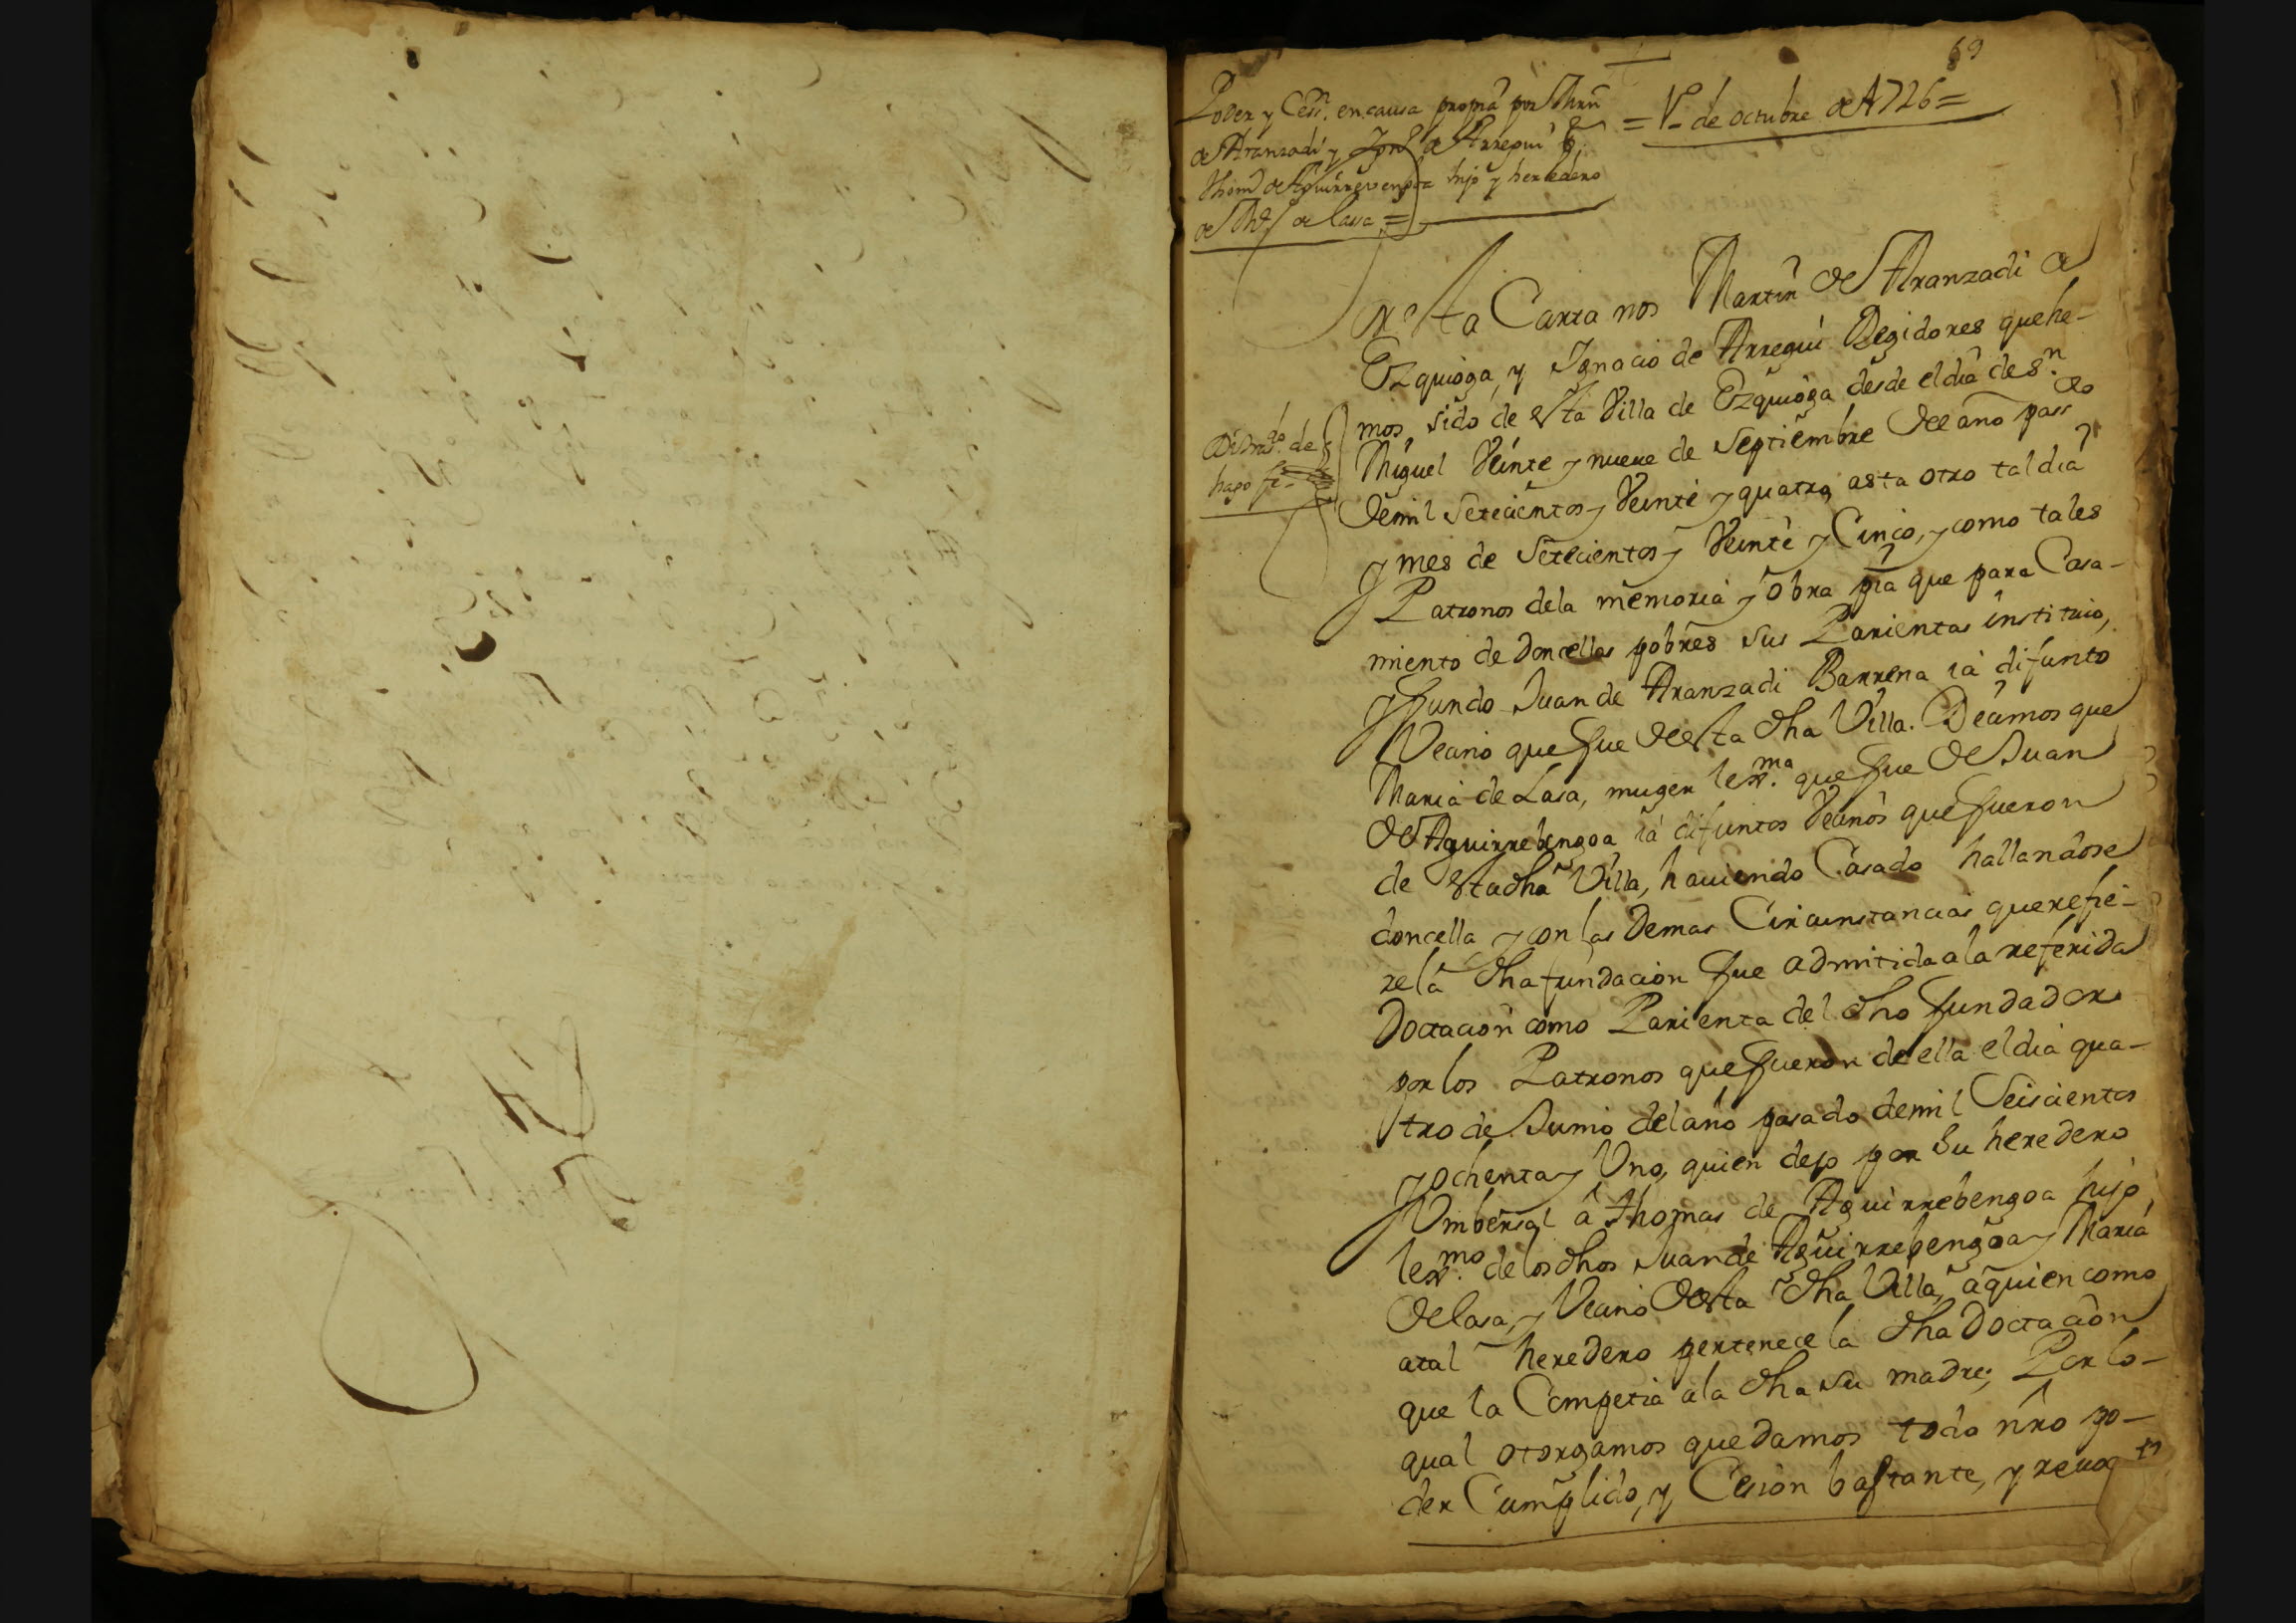 69
Poder y Cess.n en causa propia por Mrn
de Aranzadi y Ign.o de Arregui a
Thom.s de Aguirrevengoa hijo y heredero
de M.a de Lasa =
= 1.o de octubre de 1726 =
En esta Carta nos Martin de Aranzadi de
Ezquioga, y Ignacio de Arregui Regidores que he-
mos sido de esta Villa de Ezquioga desde el dia de S.n
Miguel Veinte y nueve de Septiembre del año pass.do
de mil Setecientos y Veinte y quatro asta otro tal dia
y mes de Setecientos y Veinte y Cinco, y como tales
Patronos de la memoria y obra pia que para Casa-
miento de doncellas pobres sus Parientas instituio,
y fundo Juan de Aranzadi Barrena ia difunto
Vecino que fue de esta dha Villa. Decimos que
Maria de Lasa, muger lex.ma que fue de Juan
de Aguirrebengoa ia difuntos Vecinos que fueron
de esta dha Villa, haviendo Casado hallandose
doncella y con las demas Circunstancias que refie-
re la dha fundacion fue admitida a la referida
Doctacion como Parienta del dho fundador
por los Patronos que fueron de ella el dia qua-
tro de Junio del año pasado de mil Seiscientos
y ochenta y Uno, quien dejo por Su heredero
Vnibersal â Thomas de Aguirrebengoa hijo
lex.mo de los dhos Juan de Aguirrebengoa y Maria
de Lasa, y Vecino de esta dha Villa, a quien como
atal heredero pertenece la dha Doctacion
que la Competia a la dha su madre; Por lo-
qual otorgamos que damos todo nro po-
der Cumplido, y Cesion bastante, y
de
hago fe